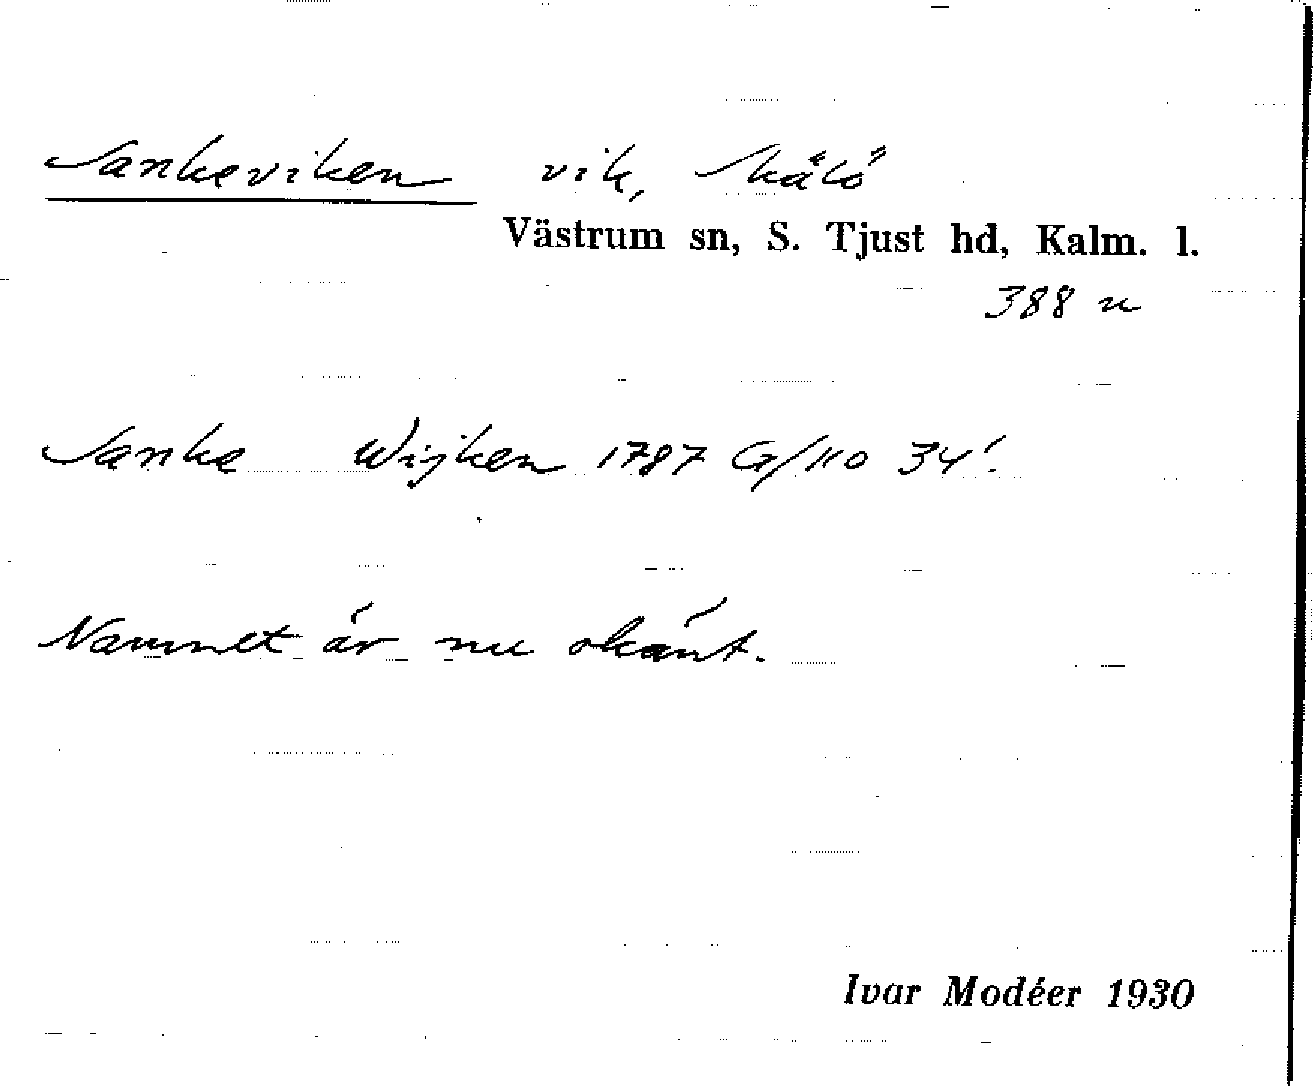 Sankeviken vik, Skälö
Västrum sn, S. Tjust hd, Kalm. l.
388 u
Sanke Wijken 1787 G/110 34!
Namnet är nu okänt.
Ivar Modéer 1930